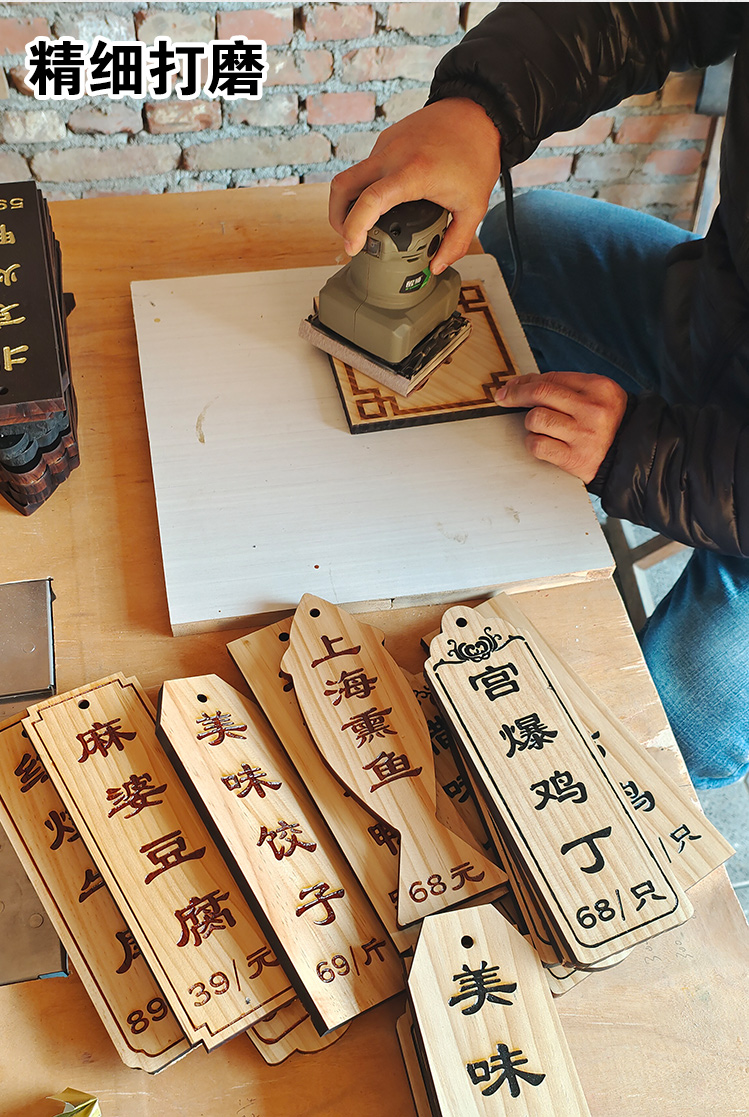 精细打磨
麻婆豆腐
39/元
美味饺子
69/斤
上海熏鱼
68元
宫爆鸡丁
68/只
美味
89
/只